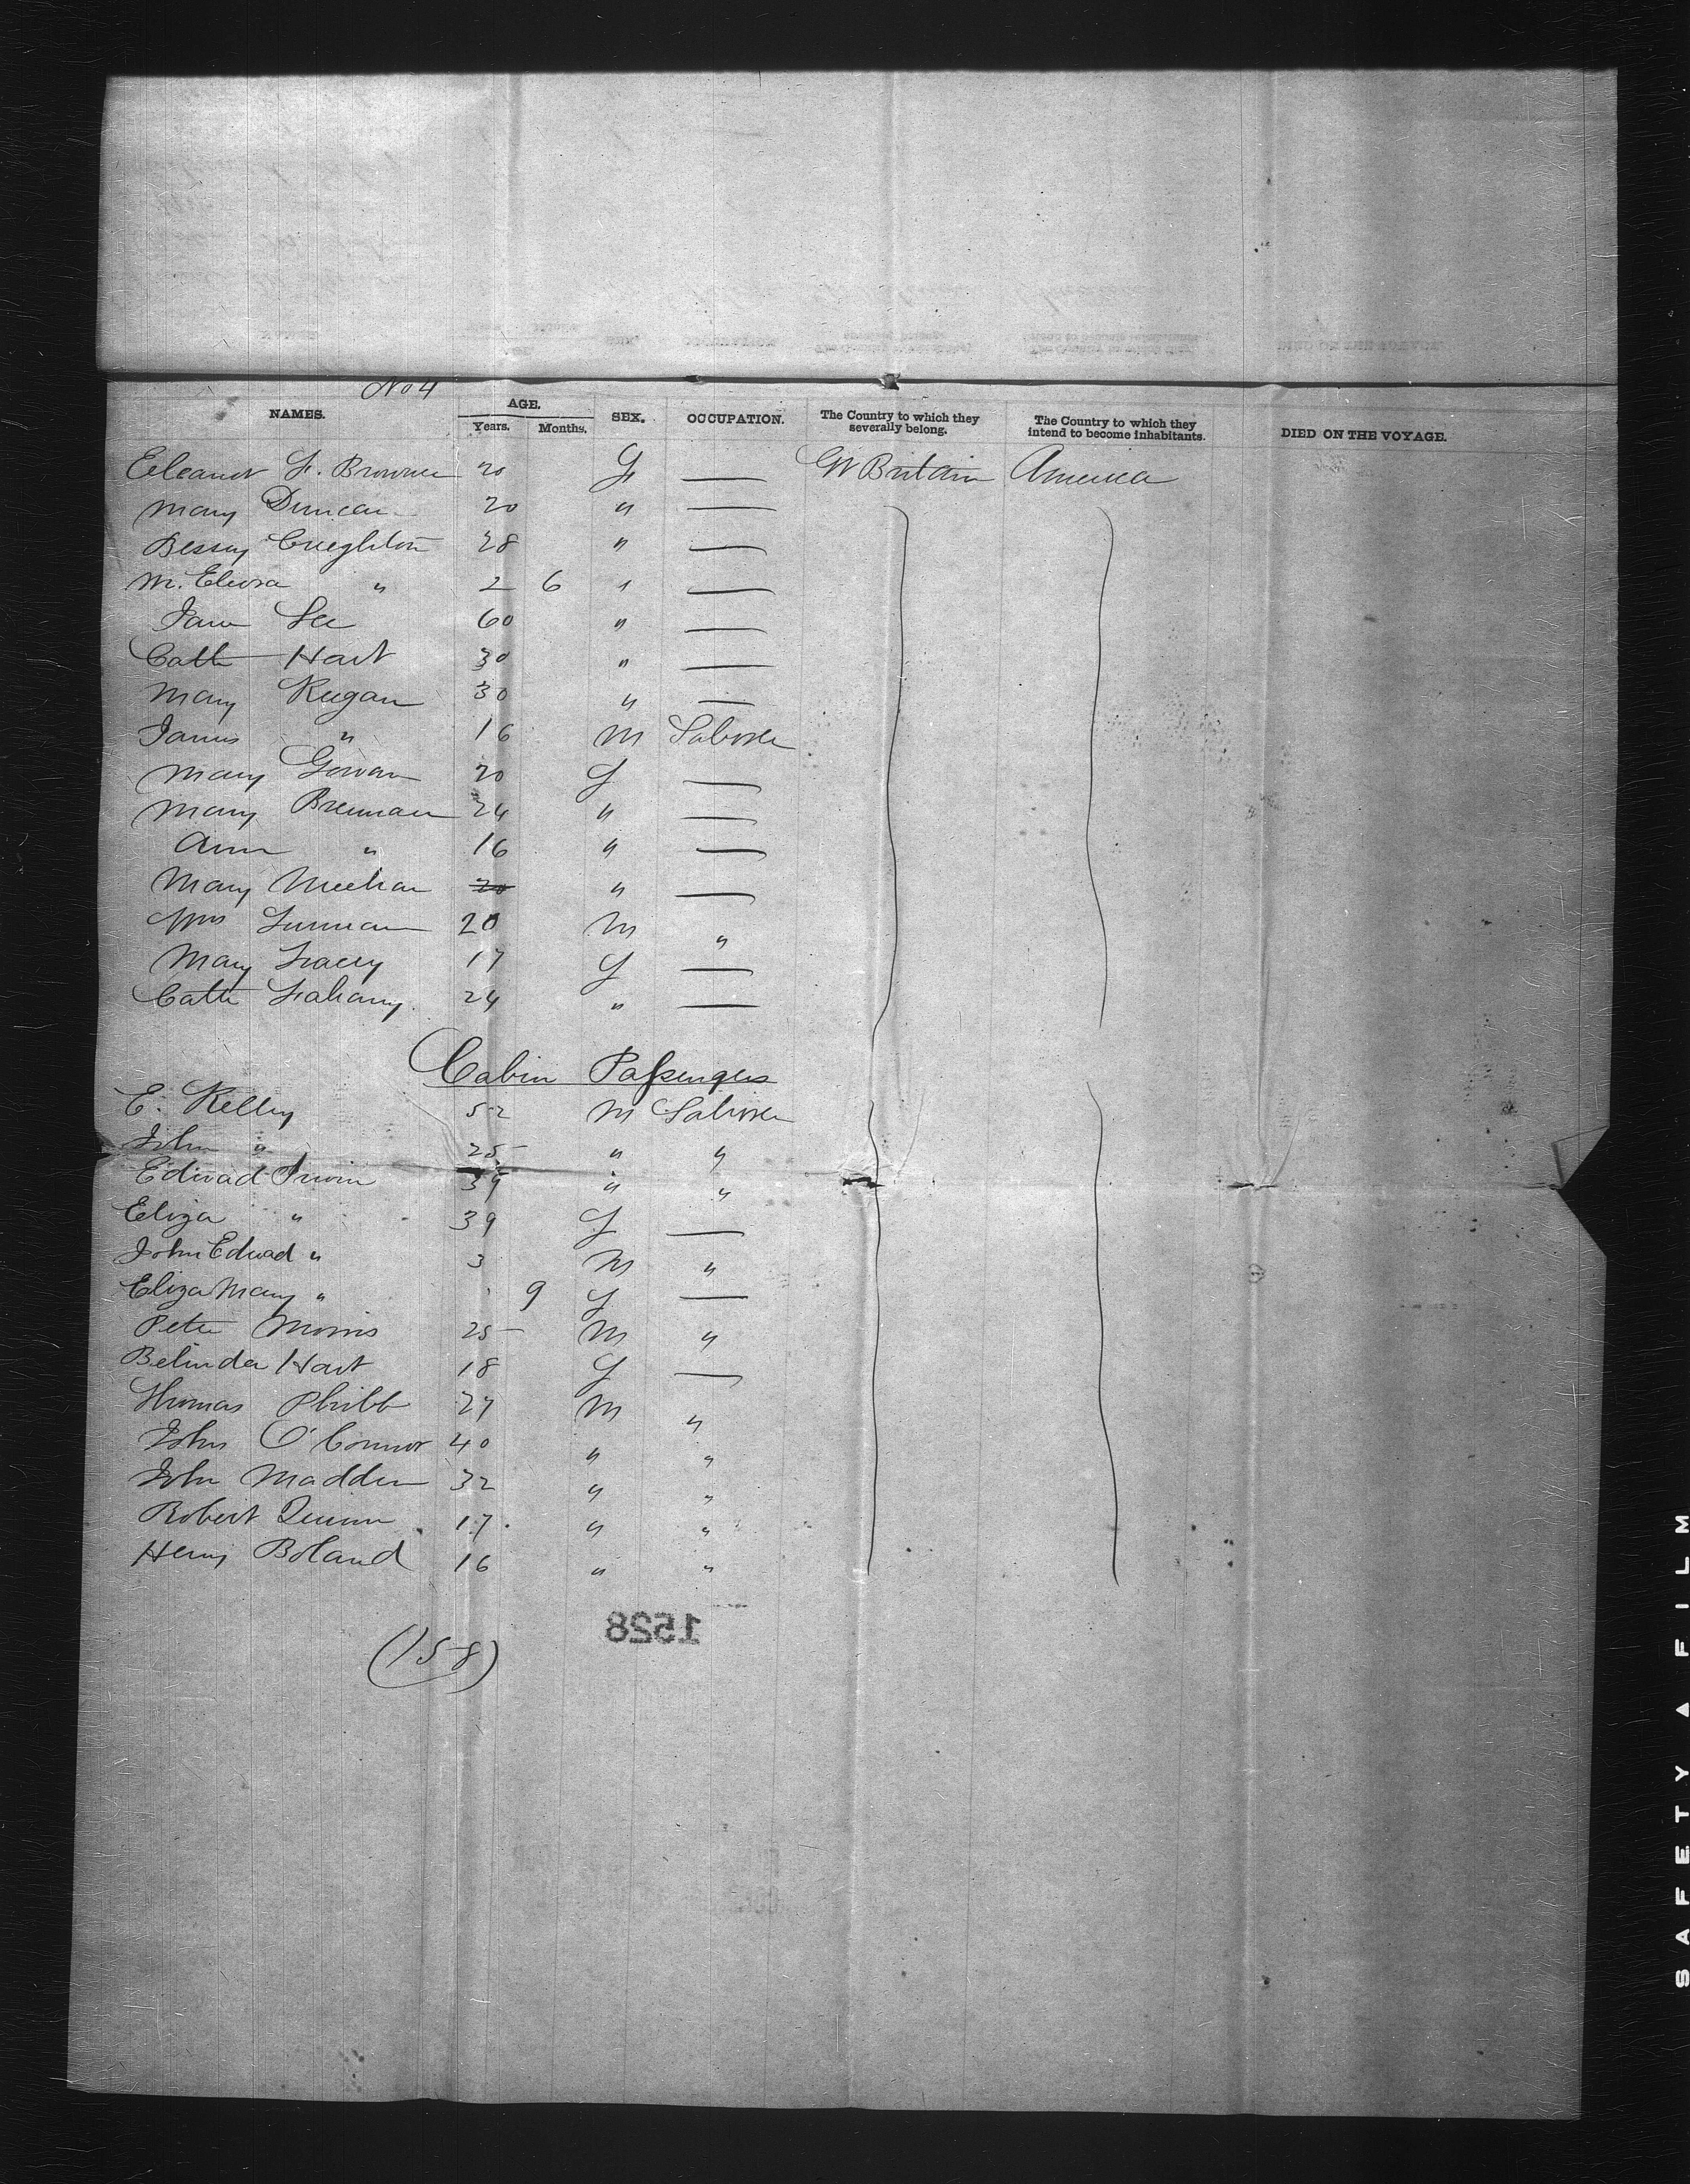 No 4
NAMES. AGE. Years. Months. SEX. OCCUPATION. The Country to which they severally belong. The Country to which they intend to become inhabitants. DIED ON THE VOYAGE.
Eleanor F. Browne 20 F — Gt Britain America
Mary Duncan 20 " —
Bessy Creighton 28 " —
M. " 2 6 " —
Jane Lee 60 " —
Cath Hart 30 " —
Mary Keegan 30 " —
James " 16 M Laborer
Mary Gowan 20 F —
Mary Brennan 24 " —
Ann " 16 " —
Mary Meehan 20 " —
Wm 20 M "
Mary Tracey 17 F —
Cath Fahamy 24 " —
Cabin Passengers
E. Kelly 52 M Laborer
John " 25 " "
Edward Irwin 39 " "
Eliza " 39 F —
John Edward " 3 M "
Eliza Mary " 9 F —
Peter Morris 25 M "
Belinda Hart 18 F —
Thomas Phibb 27 M "
John O'Connor 40 " "
John Madden 32 " "
Robert Quinn 17 " "
Henry Boland 16 " "
1528
(158)
SAFETY ▲ FILM